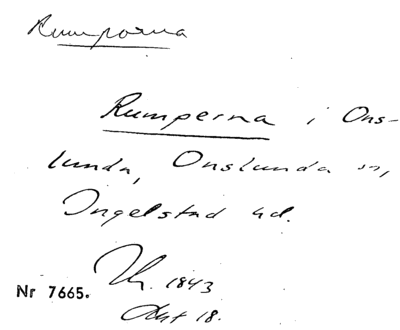 Rumporna
Rumperna i Ons-
lunda, Onslunda sn,
Ingelstad hd.
1843
Nr 7665.
Akt 18.